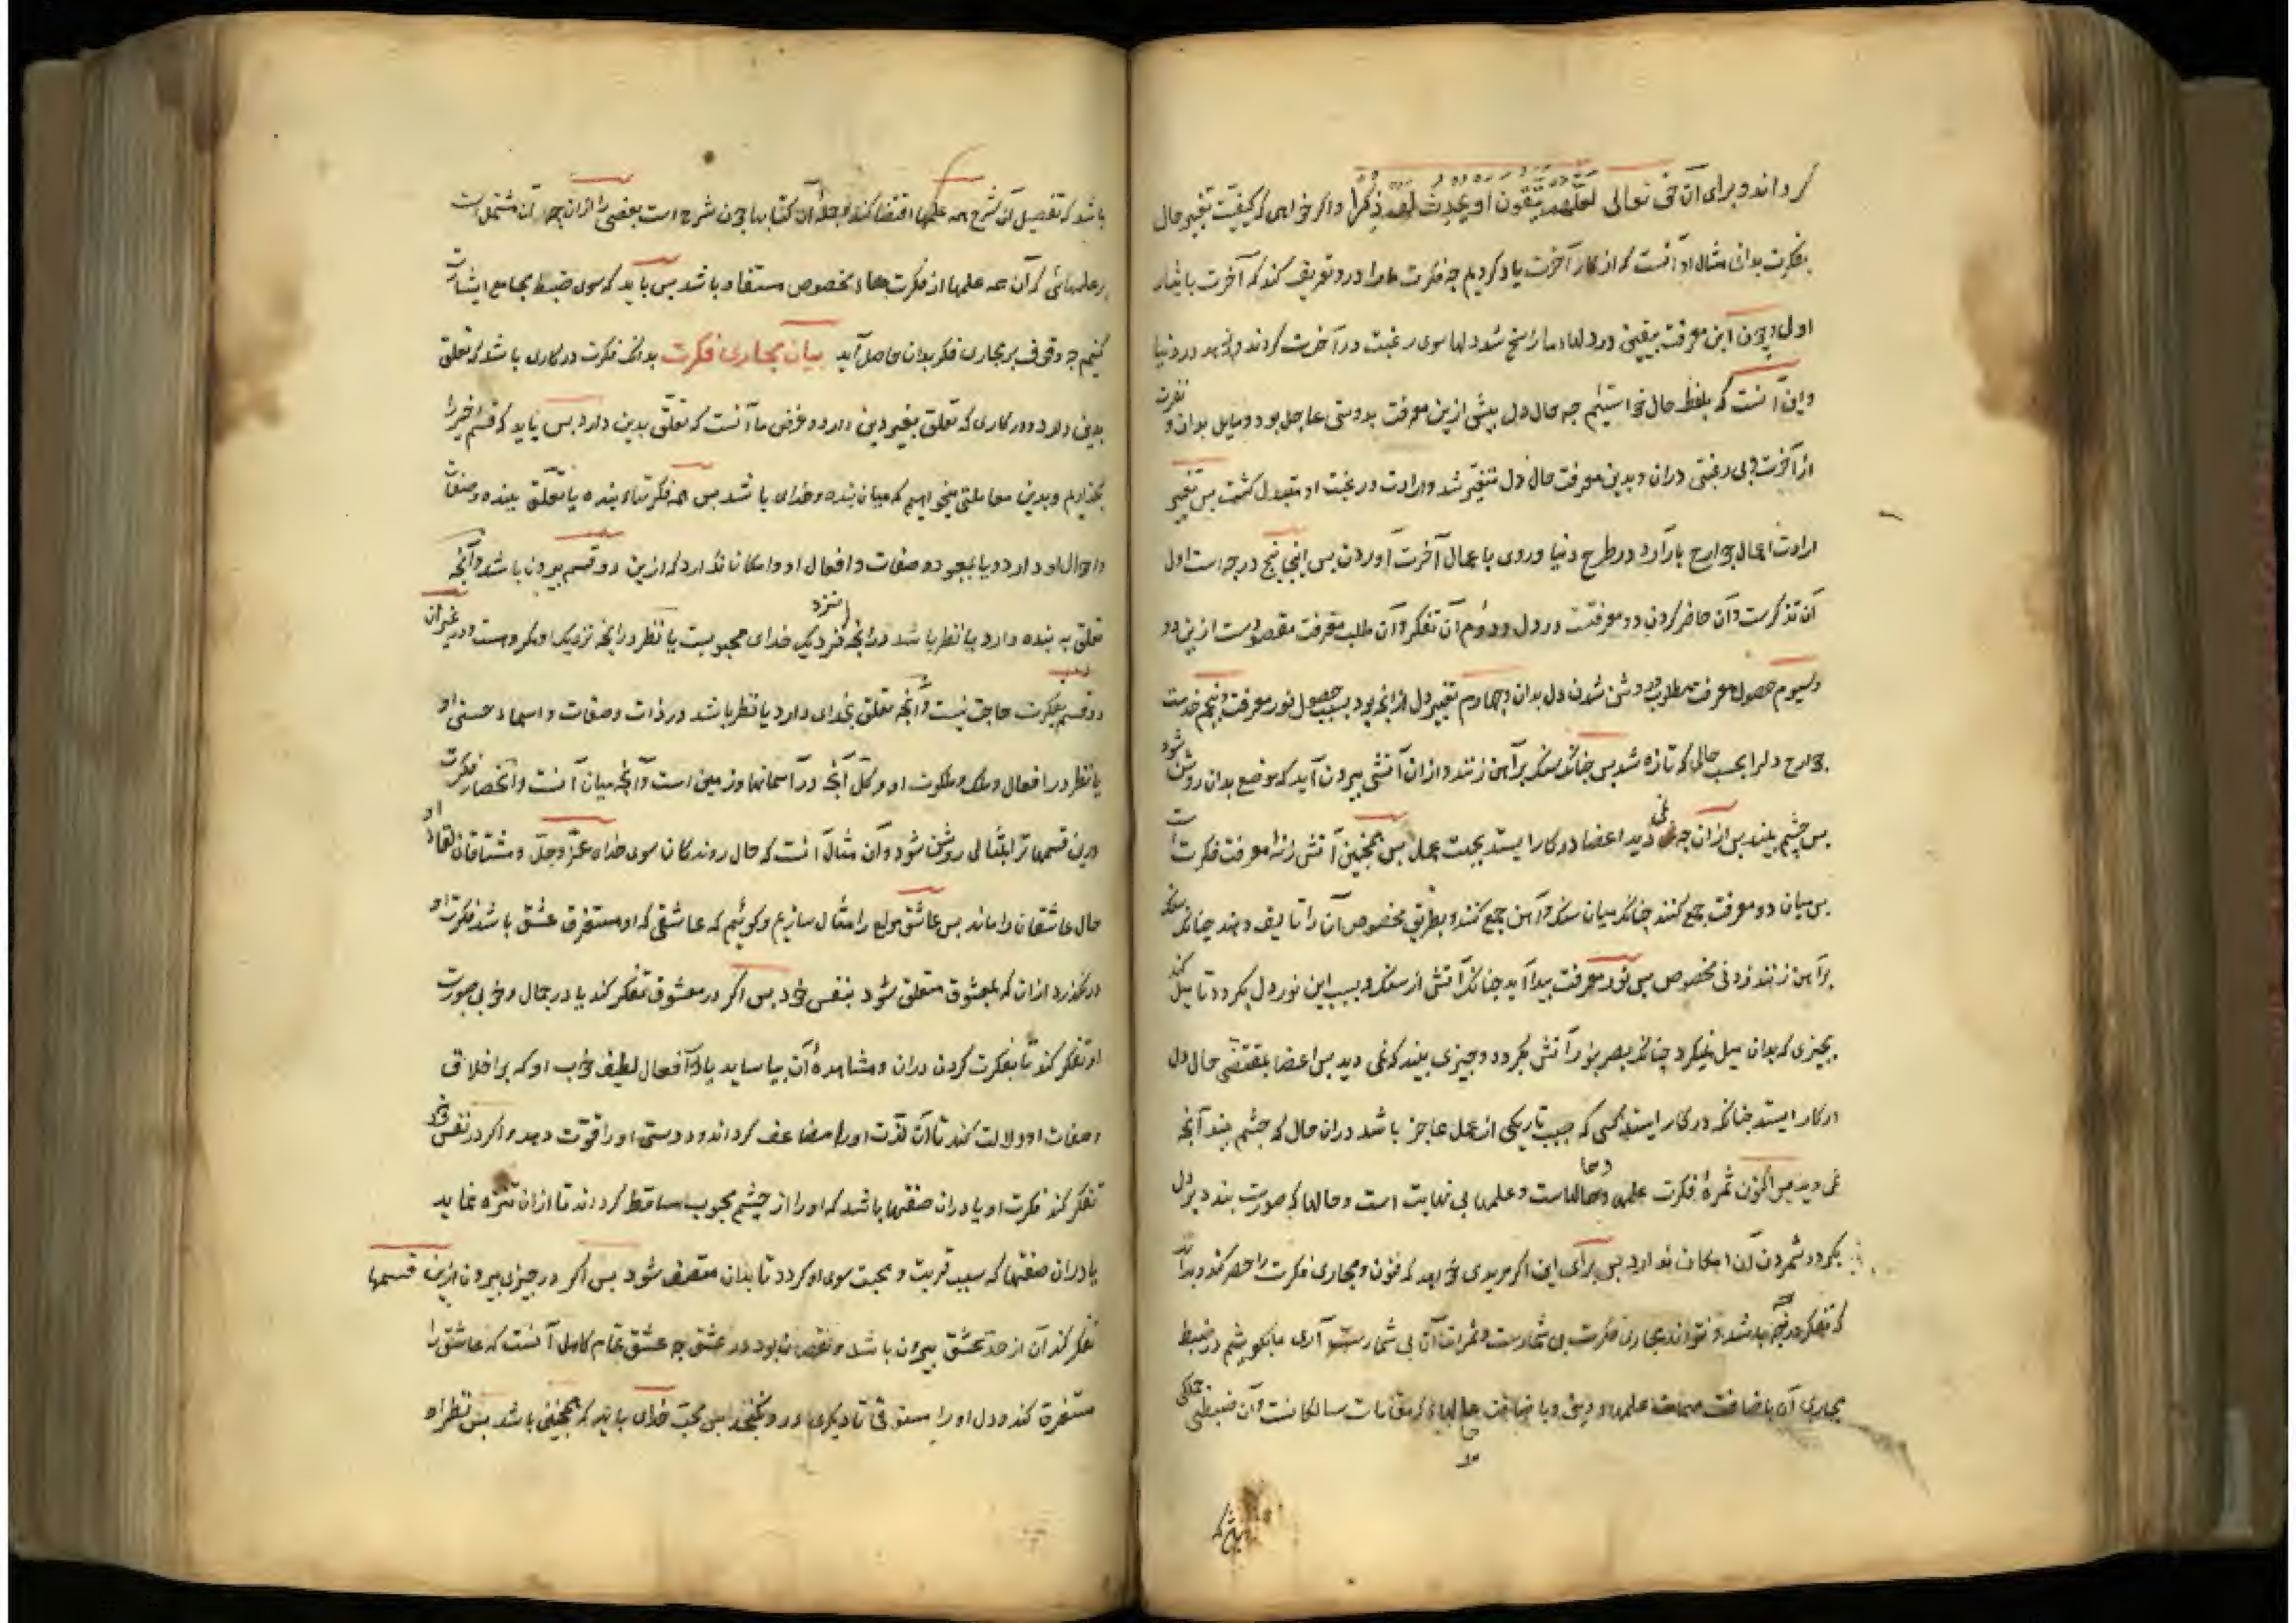 گرداند و برای آن حق تعالی لعلهم یتقون او یحدث لهم ذکرا و اگر خواهی که کیفیت تغیر حال
بفکرت بدانی مثال او آنست که از کار آخرت یاد کردیم چه فکرت ما را درو تعریف کند که آخرت بایثار
اولی و چون این معرفت بیقین در دلهاء ما راسخ شد دلها سوی رغبت در آخرت گردند و زهد در دنیا
و این آنست که بلفظ حال خواستیم چه حال دل پیش ازین معرفت بدوستی عاجل بود و مایل بدان و نفرت
از آخرت و بی رغبتی دران و بدین معرفت حال دل متغیر شد و ارادت و رغبت او متبدل گشت پس تغیر
ارادت اعمال جوارح بار آرد در طرح دنیا و روی باعمال آخرت آوردن پس اینجا پنج درجه است اول
آن تذکرست و آن حاضر کردن دو معرفتست در دل و دوم آن تفکر و آن طلب معرفت مقصودست ازین دو
و سیوم حصول معرفت مطلوب و روشن شدن دل بدان و چهارم تغیر دل ازانچه بود بسبب حصول نور معرفت و پنجم خدمت
جوارح دلرا بحسب حالی که تازه شد پس چنانکه سنگ بر آهن زنند و ازان آتشی بیرون آید که موضع بدان روشن شود
پس چشم بیند پس ازان چه نمی دید و اعضا در کار ایستد بجهت عمل پس همچنین آتش زنه معرفت فکرت است
پس میان دو معرفت جمع کنند چنانکه میان سنگ و آهن جمع کنند و بطریق مخصوص آن را تالیف دهند چنانکه سنگ
بر آهن زنند زدنی مخصوص پس نور معرفت پیدا آید چنانکه آتش از سنگ و بسبب این نور دل بگردد تا میل کند
بچیزی که بدان میل نمیکرد چنانکه بصر بنور آتش بگردد و چیزی بیند که نمی دید پس اعضا بمقتضی حال دل
در کار ایستد چنانکه در کار ایستد کسی که بسبب تاریکی از عمل عاجز باشد دران حال که چشم بیند آنچه
نمی دید پس اکنون ثمرهٔ فکرت علمها و حالهاست و علمها بی نهایت است و حالها که صورت بندد بر دل
بگردد شمردن آن امکان ندارد پس برای این اگر مریدی خواهد که فنون و مجاری فکرت را حصر کند و بداند
که تفکر در چه باشد نتواند چه مجاری فکرت بی شمارست و ثمرات آن بی شمارست آری ما بکوشیم در ضبط
مجاری آن باضافت مهمات علمهاء دینی و باضافت حالهاء که مقامات سالکانست و آن ضبطی جملگی
باشد که تفصیل آن شرح همه علمها اقتضا کند و جمله آن کتابها چون شرح است بعضی را ازان چه آن مشتمل است
بر علمهائی که آن همه علمها از فکرت هاء مخصوص مستفاد باشد پس باید که سوی ضبط مجامع ایشارت
کنیم چه وقوف بر مجاری فکر بدان حاصل آید بیان مجاری فکرت بدانک فکرت در کاری باشد که تعلق
بدین دارد و در کاری که تعلق بغیر دین دارد و غرض ما آنست که تعلق بدین دارد پس باید که قسم اخیر را
بگذاریم و بدین معاملتی میخواهیم که میان بنده و خدای باشد پس همه فکرتهاء بنده یا تعلق ببنده و صفات
و احوال او دارد و یا بمعبود و صفات و افعال او و امکان ندارد که ازین دو قسم بیرون باشد و آنچه
تعلق به بنده دارد یا نظر باشد درانچه نزدیک خدای محبوبست یا نظر درانچه نزدیک او مکروهست و در غیر این
دو قسم بفکرت حاجت نیست و آنچه تعلق بخدای دارد یا نظر باشد در ذات و صفات و اسماء حسنی او
یا نظر در افعال و ملک و ملکوت او و کل آنچه در آسمانها و زمین است و آنچه میان آنست و انحصار فکرت
درین قسمها ترا بمثالی روشن شود و آن مثال آنست که حال روندگان سوی خدای عز و جل و مشتاقان لقاء او
حال عاشقان را ماند پس عاشق مولع را مثال سازیم و گوئیم که عاشقی که او مستغرق عشق باشد فکرت او
در نگذرد ازان که بمعشوق متعلق شود یا بنفس خود پس اگر در معشوق تفکر کند یا در جمال و خوبی صورت
او تفکر کند تا بفکرت کردن دران و مشاهدهٔ آن بیاساید یا در افعال لطیف خوب او که بر اخلاق
و صفات او دلالت کند تا آن لذت او را مضاعف گرداند و دوستی او را قوت دهد و اگر در نفس خود
تفکر کند فکرت او یا دران صفتها باشد که او را از چشم محبوب ساقط گرداند تا ازان تنزه نماید
یا دران صفتها که سبب قربت و محبت سوی او گردد تا بدان متصف شود پس اگر در چیزی بیرون ازین قسمها
تفکر کند آن از حد عشق بیرون باشد و نقصان بود در عشق چه عشق تمام کامل آنست که عاشق را
مستغرق کند و دل او را مستوفی تا دیگری درو نگنجد پس محب خدای باید که همچنین باشد پس نظر او